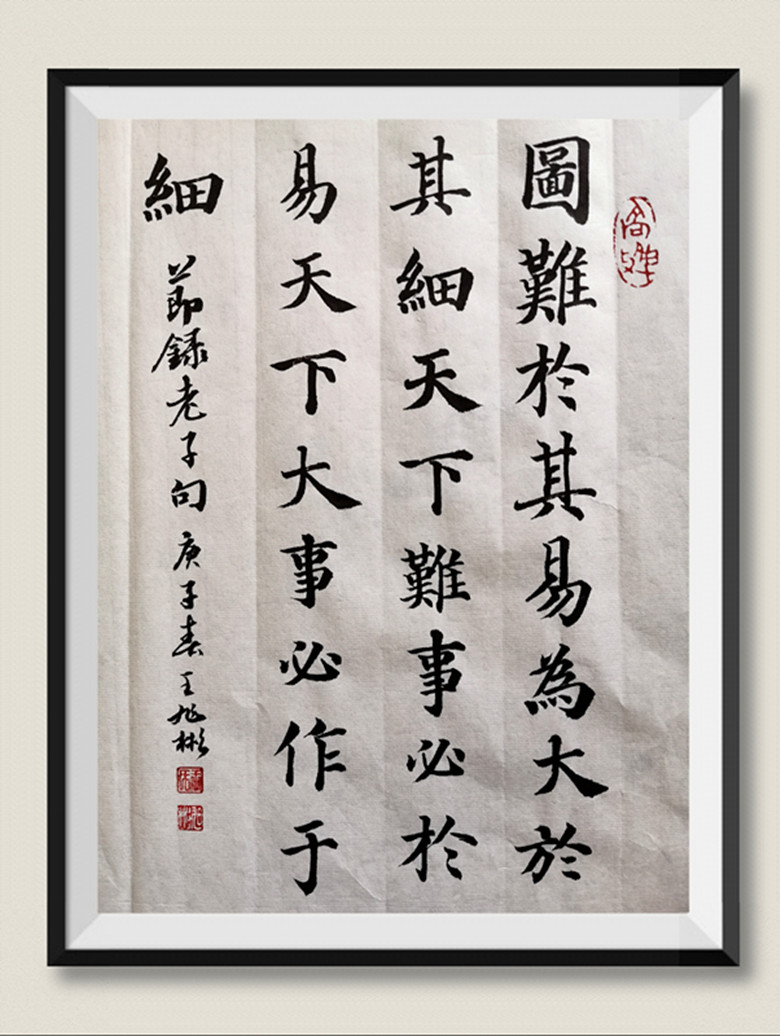 圖難於其易為大於
其細天下難事必於
易天下大事必作于
細
節録老子句 庚子春 王旭彬